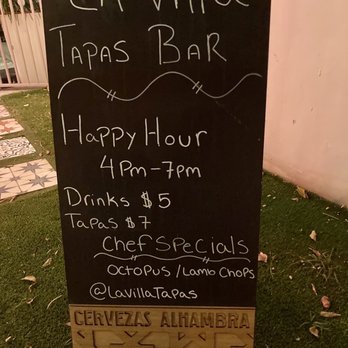 La Villa
Tapas Bar
Happy Hour
4pm-7pm
Drinks $5
Tapas $7
Chef Specials
Octopus / Lamb Chops
@LaVillaTapas
CERVEZAS ALHAMBRA